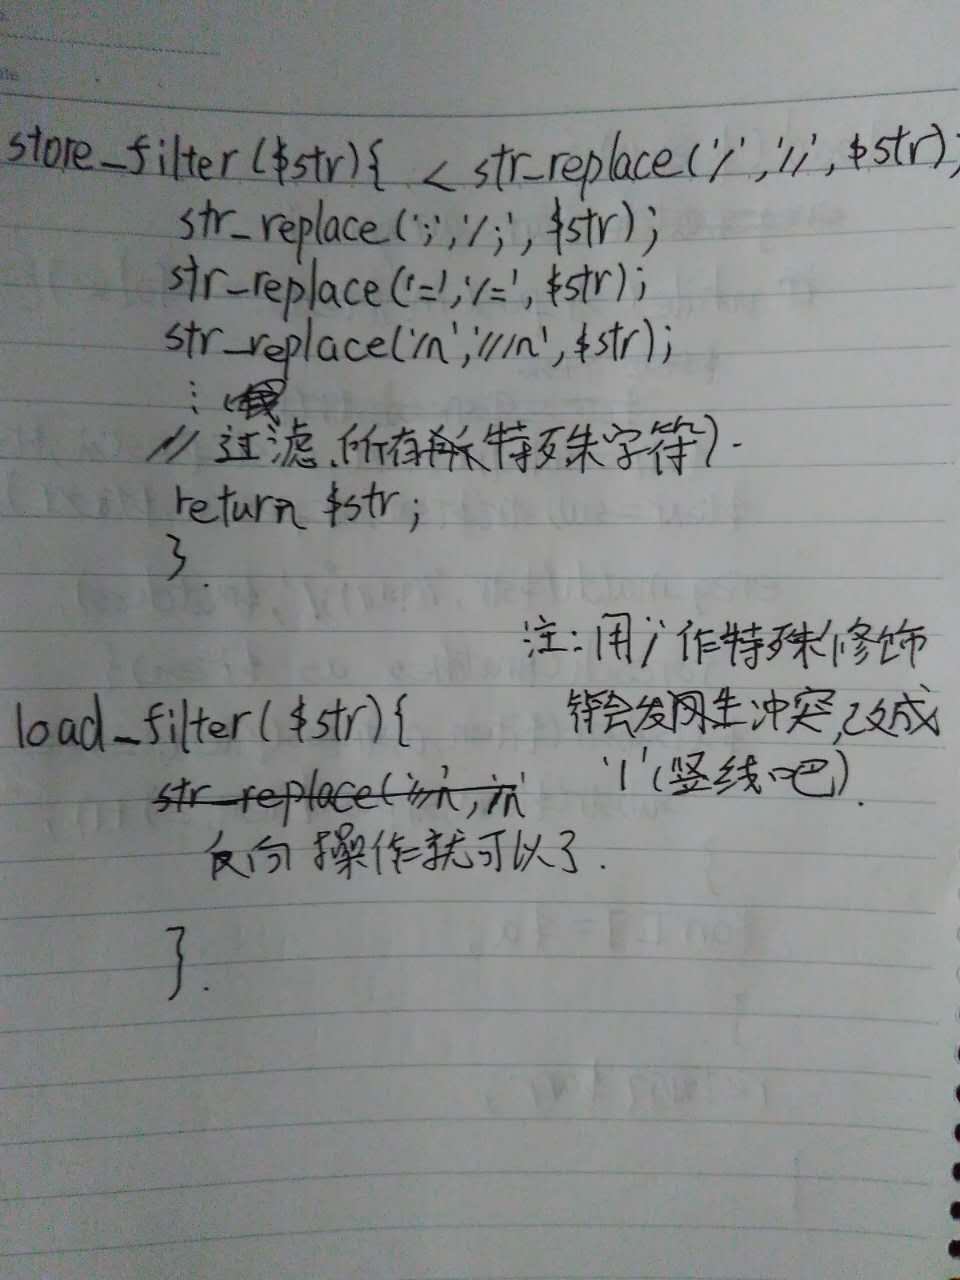 store_filter($str){ < str_replace('/','//',$str);
str_replace(';','/;',$str);
str_replace('=','/=',$str);
str_replace('/n','///n',$str);
⋮
// 过滤所有特殊字符)
return $str;
}.
注:用'/'作特殊修饰
符会发生冲突,改成
'|'(竖线吧).
load_filter($str){
str_replace('//n','/n'
反向操作就可以了.
}.